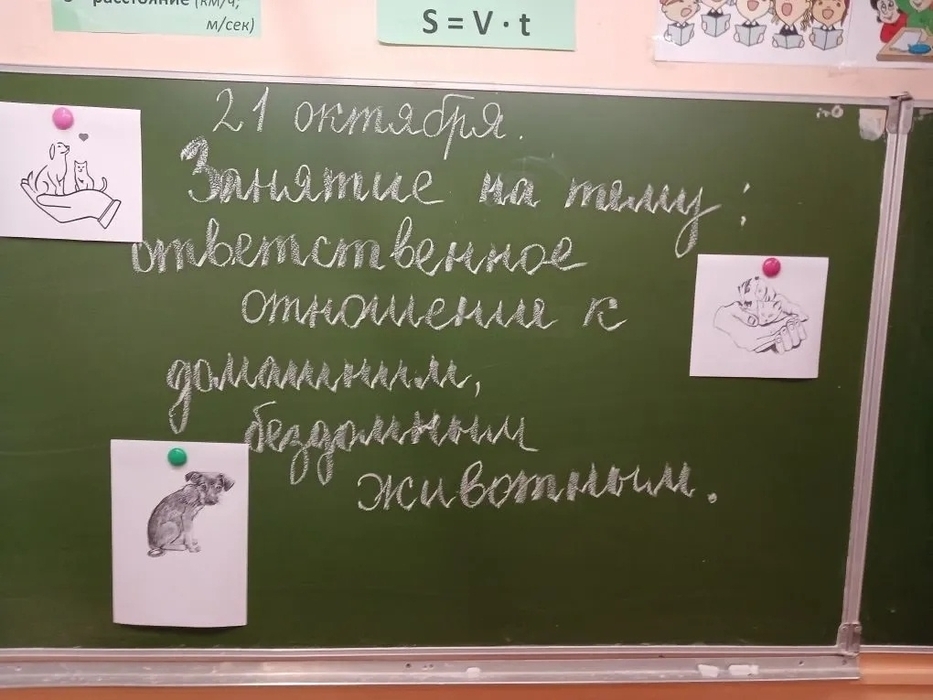 расстояние (км/ч;
м/сек)
S = V · t
21 октября.
Занятие на тему:
ответственное
отношение к
домашним,
бездомным
животным.